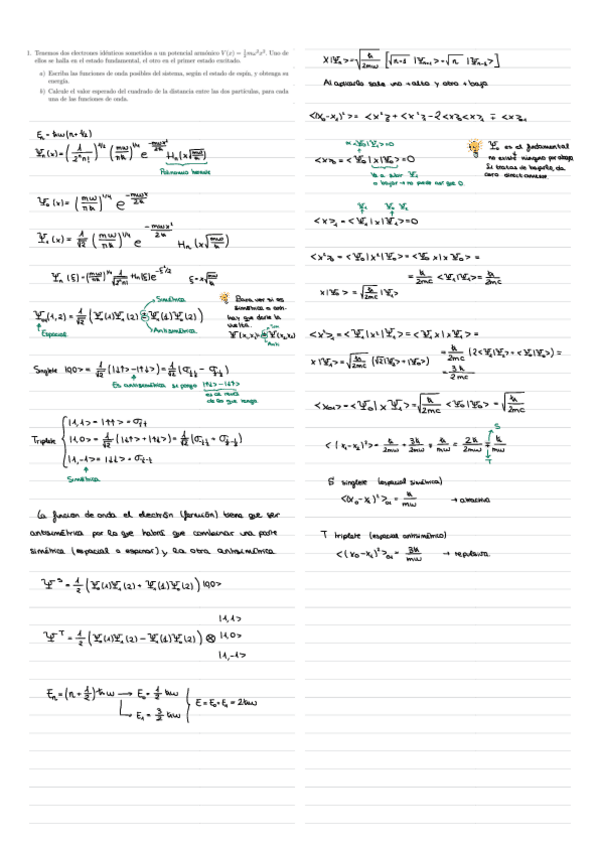 1. Tenemos dos electrones idénticos sometidos a un potencial armónico V(x) = ½mω²x². Uno de
ellos se halla en el estado fundamental, el otro en el primer estado excitado.
a) Escriba las funciones de onda posibles del sistema, según el estado de espín, y obtenga su
energía.
b) Calcule el valor esperado del cuadrado de la distancia entre las dos partículas, para cada
una de las funciones de onda.
Eₙ = ħω(n + 1/2)
Ψₙ(x) = (1/2ⁿn!)^{1/2} (mω/πħ)^{1/4} e^{-mωx²/2ħ} Hₙ(x√(mω/ħ))
Polinomio hermite
Ψ₀(x) = (mω/πħ)^{1/4} e^{-mωx²/2ħ}
Ψ₁(x) = 1/√2 (mω/πħ)^{1/4} e^{-mωx²/2ħ} Hₙ(x√(mω/ħ))
Ψₙ(ξ) = (mω/πħ)^{1/4} 1/√(2ⁿn!) Hₙ(ξ) e^{-ξ²/2} ξ = x√(mω/ħ)
Simétrica
Ψ₀₁(1,2) = 1/√2 (Ψ₀(1)Ψ₁(2) ± Ψ₁(1)Ψ₀(2))
Espacial
Antisimétrica
Para ver si es
simétrica o anti-
hay que darle la
vuelta.
Singlete |0,0> = 1/√2 (|↑↓> - |↓↑>)
Es antisimétrica si pongo |↑↓> - |↓↑>
es el resto
de lo que tengo
Triplete
|1,1> = |↑↑>
|1,0> = 1/√2 (|↑↓> + |↓↑>)
|1,-1> = |↓↓>
Simétrica
La función de onda el electrón (fermión) tiene que ser
antisimétrica por lo que habrá que combinar una parte
simétrica (espacial o espinor) y la otra antisimétrica
Ψˢ = 1/2 (Ψ₀(1)Ψ₁(2) + Ψ₀(1)Ψ₁(2)) |0,0>
|1,1>
Ψᵀ = 1/2 (Ψ₀(1)Ψ₁(2) - Ψ₀(1)Ψ₁(2)) ⊗ |1,0>
|1,-1>
Eₙ = (n + 1/2) ħω → E₀ = 1/2 ħω
E₁ = 3/2 ħω
E = E₀ + E₁ = 2ħω
x|Ψₙ> = √(ħ/2mω) [√(n+1) |Ψₙ₊₁> + √n |Ψₙ₋₁>]
Al aplicarlo sale uno + alto y otro + bajo
<(x₀-x₁)²> = <x²>₀ + <x²>₁ - 2<x>₀<x>₁ ∓ <x>₀₁
<x>₀ = <Ψ₀|x|Ψ₀> = 0
Va a subir Ψ₁
o bajar → no puede así que 0
Ψ₀ es el fundamental
no existe ninguno por debajo
Si tratas de bajarlo, da
cero directamente
<x>₁ = <Ψ₁|x|Ψ₁> = 0
<x²>₀ = <Ψ₀|x²|Ψ₀> = <Ψ₀x|xΨ₀> =
= ħ/2mω <Ψ₁|Ψ₁> = ħ/2mω
x|Ψ₀> = √(ħ/2mω) |Ψ₁>
<x²>₁ = <Ψ₁|x²|Ψ₁> = <Ψ₁x|xΨ₁> =
x|Ψ₁> = √(ħ/2mω) (√2|Ψ₂> + |Ψ₀>) = ħ/2mω (2<Ψ₂|Ψ₂> + <Ψ₀|Ψ₀>) =
= 3ħ/2mω
<x₀₁> = <Ψ₀|x|Ψ₁> = √(ħ/2mω) <Ψ₀|Ψ₀> = √(ħ/2mω)
S
<(x₁-x₂)²> = ħ/2mω + 3ħ/2mω ∓ ħ/mω = 2ħ/mω ∓ ħ/mω
T
S singlete (espacial simétrica)
<(x₀-x₁)²>₀₁ = ħ/mω → atractiva
T triplete (espacial antisimétrica)
<(x₀-x₁)²>₀₁ = 3ħ/mω → repulsiva